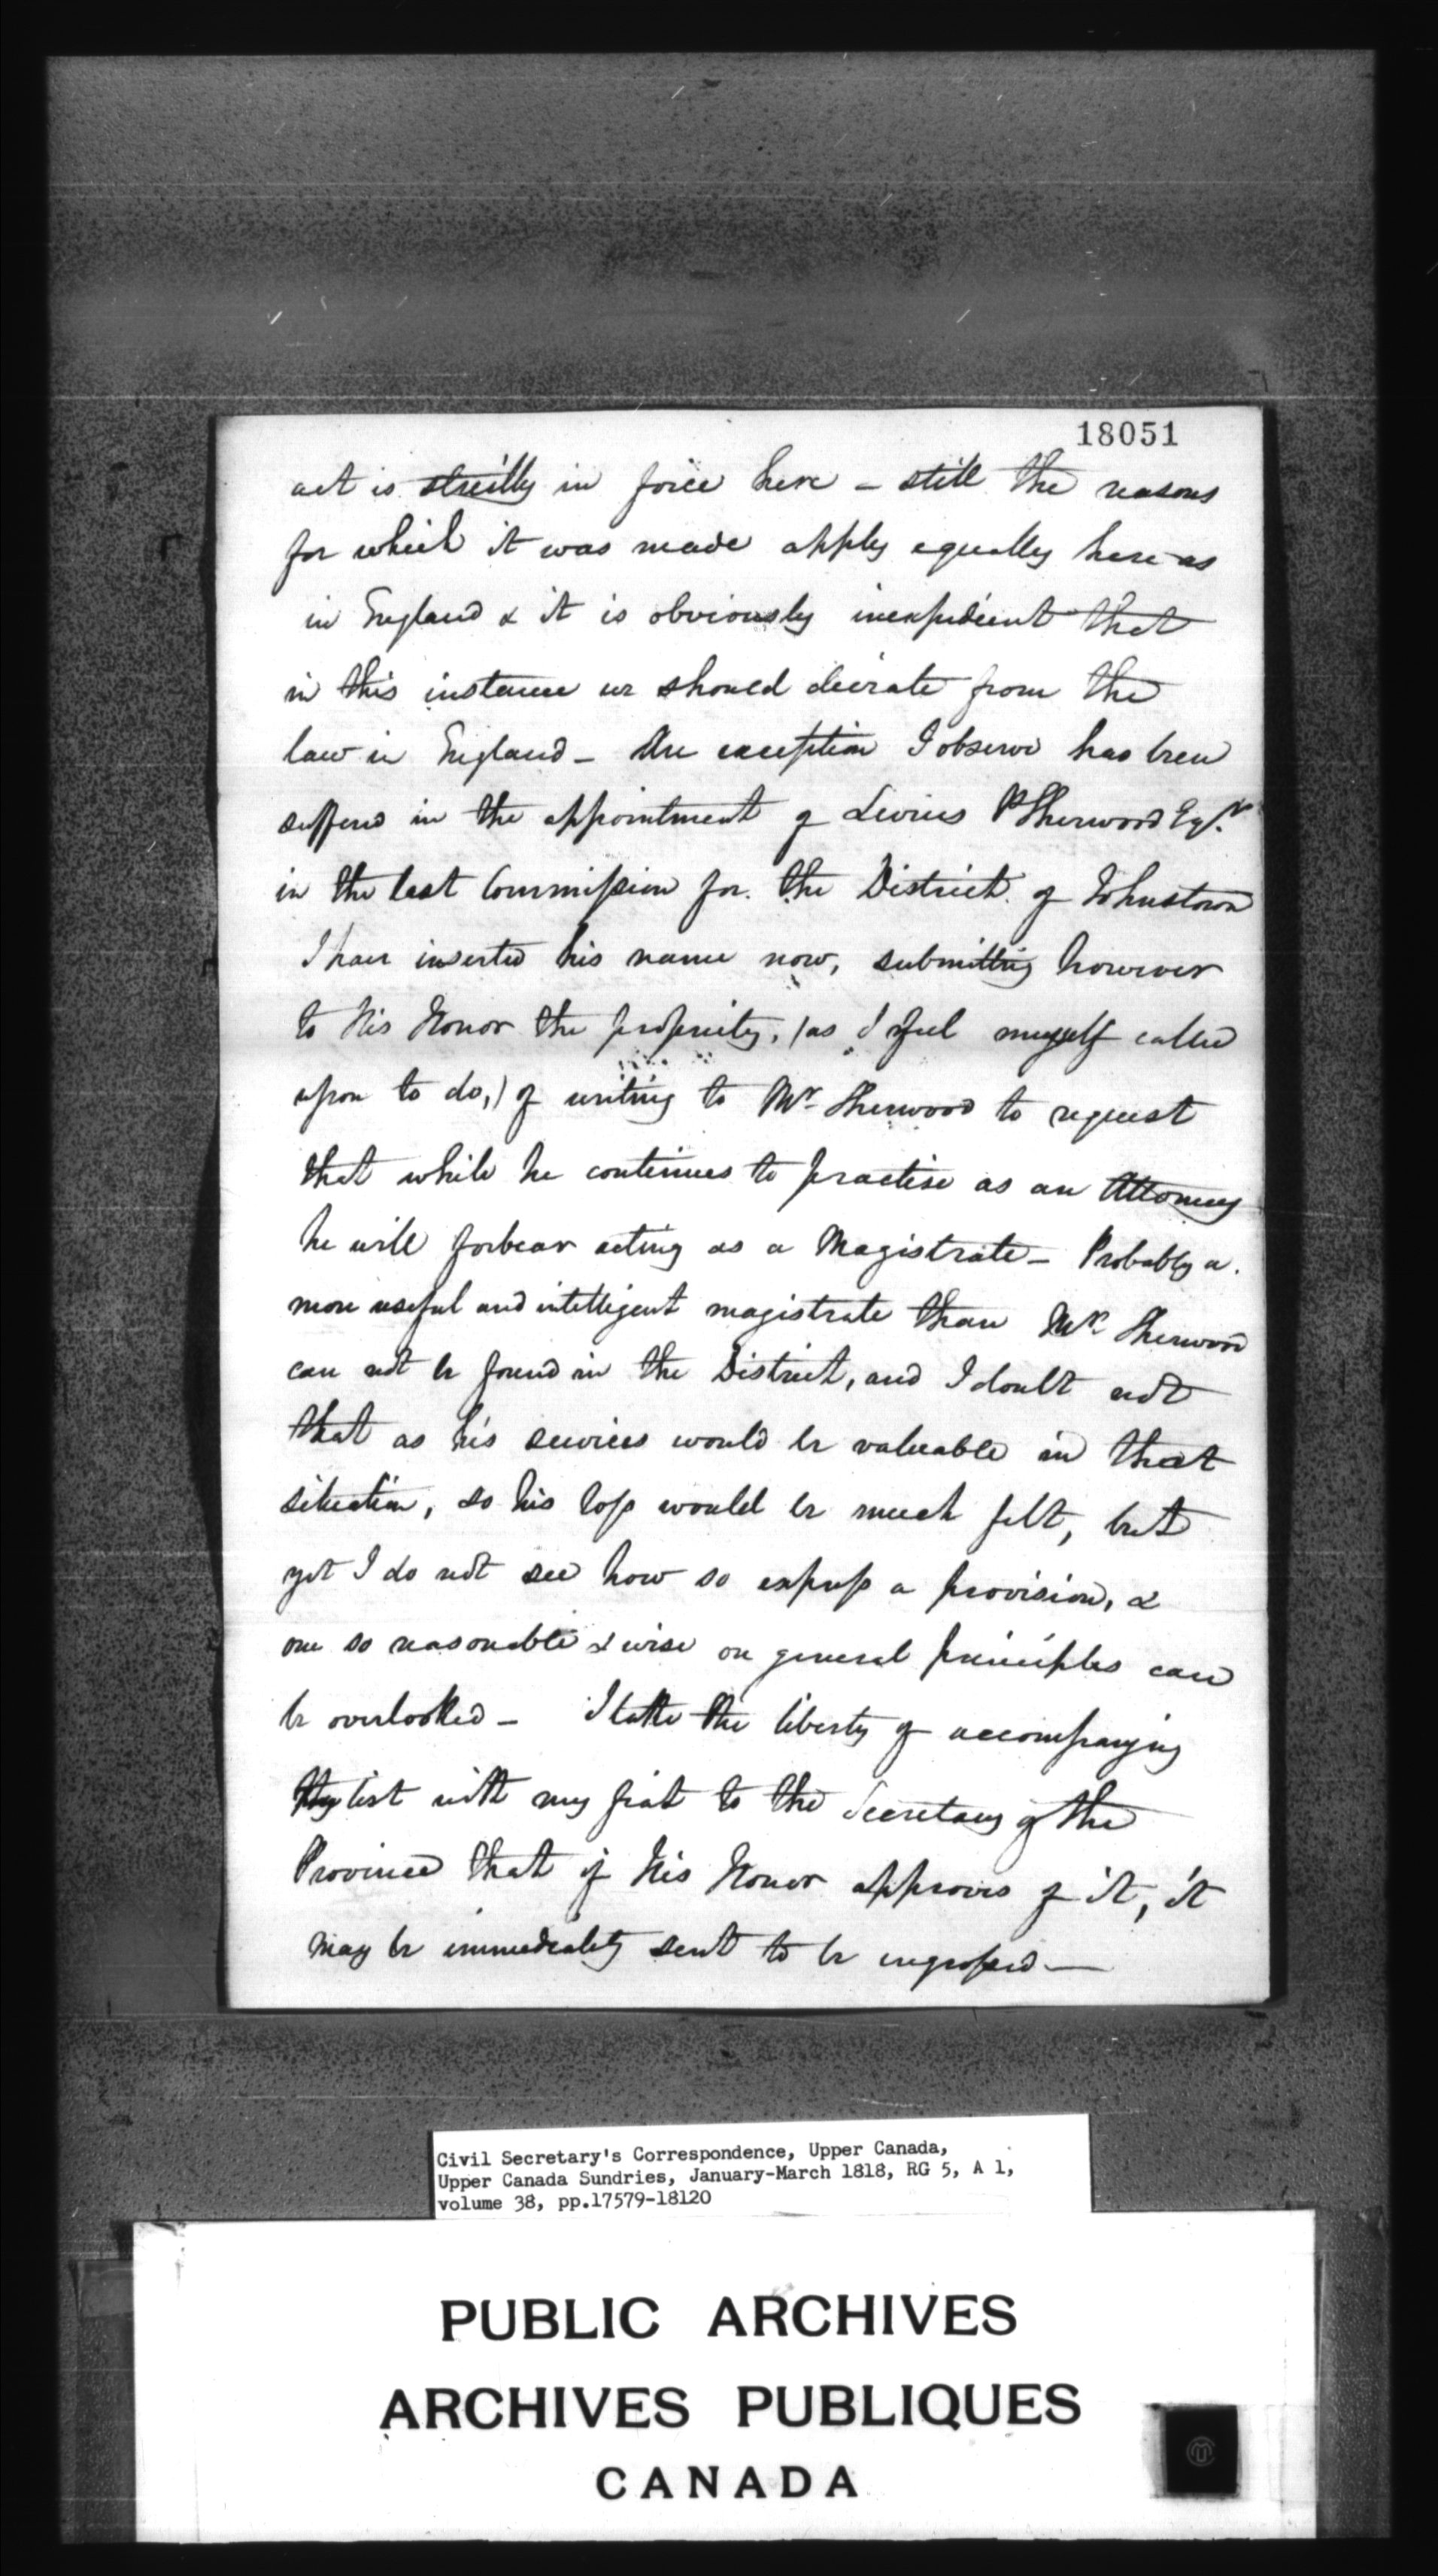 18051
act is strictly in force here – still the reasons
for which it was made apply equally here as
in England & it is obviously inexpedient that
in this instance we should deviate from the
law in England – An exception I observe has been
suffered in the appointment of Levius P Sherwood Esqr.
in the last Commission for the District of Johnstown
I have inserted his name now, submitting however
to His Honor the propriety, (as I feel myself called
upon to do,) of writing to Mr Sherwood to request
that while he continues to practise as an Attorney
he will forbear acting as a Magistrate – Probably a
more useful and intelligent magistrate than Mr. Sherwood
can not be found in the District, and I doubt not
that as his services would be valuable in that
situation, so his loss would be much felt, but
yet I do not see how so express a provision, &
one so reasonable & wise on general principles can
be overlooked – I take the liberty of accompanying
list with my fiat to the Secretary of the
Province that if His Honor approves of it, it
may be immediately sent to be engrossed —
Civil Secretary's Correspondence, Upper Canada,
Upper Canada Sundries, January-March 1818, RG 5, A 1,
volume 38, pp.17579-18120
PUBLIC ARCHIVES
ARCHIVES PUBLIQUES
CANADA